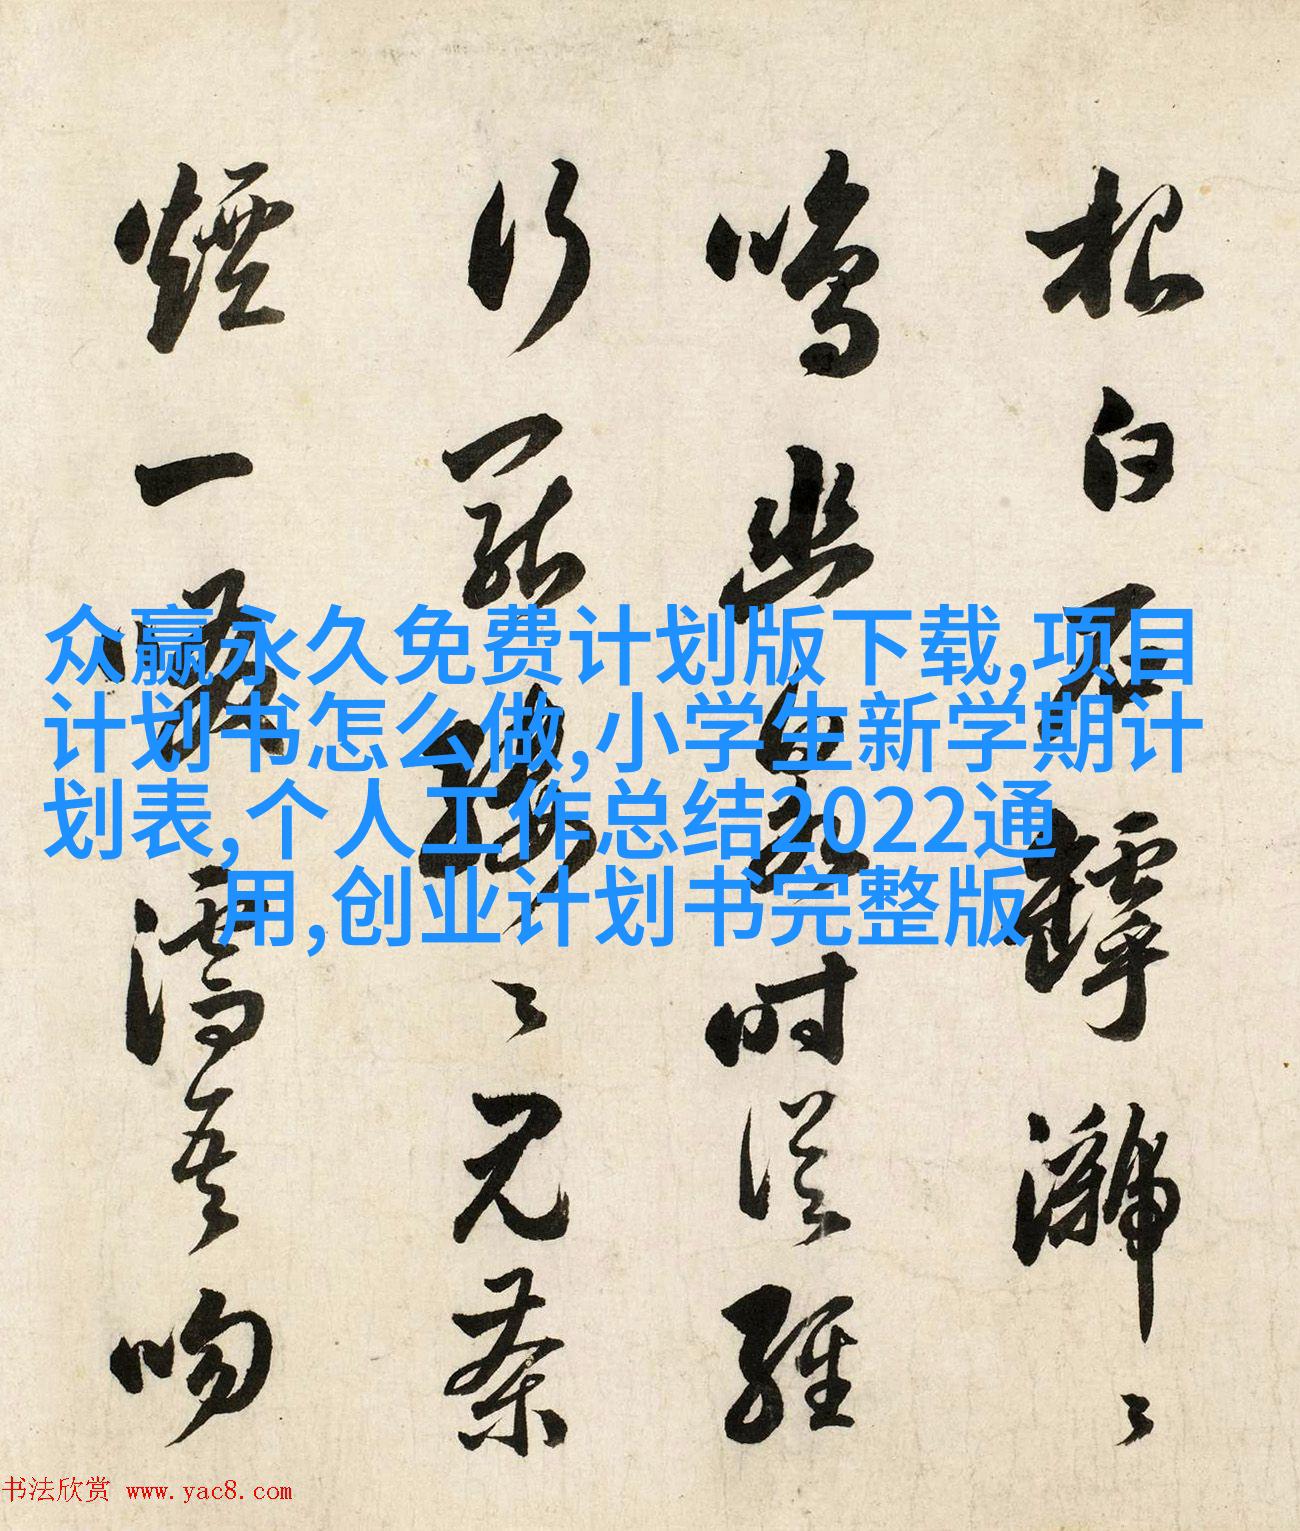 众赢永久免费计划版下载,项目
计划书怎么做,小学生新学期计
划表,个人工作总结2022通
用,创业计划书完整版
根白石
鳴幽時從
行罷茶
煙一濡吾吻
书法欣赏 www.yac8.com